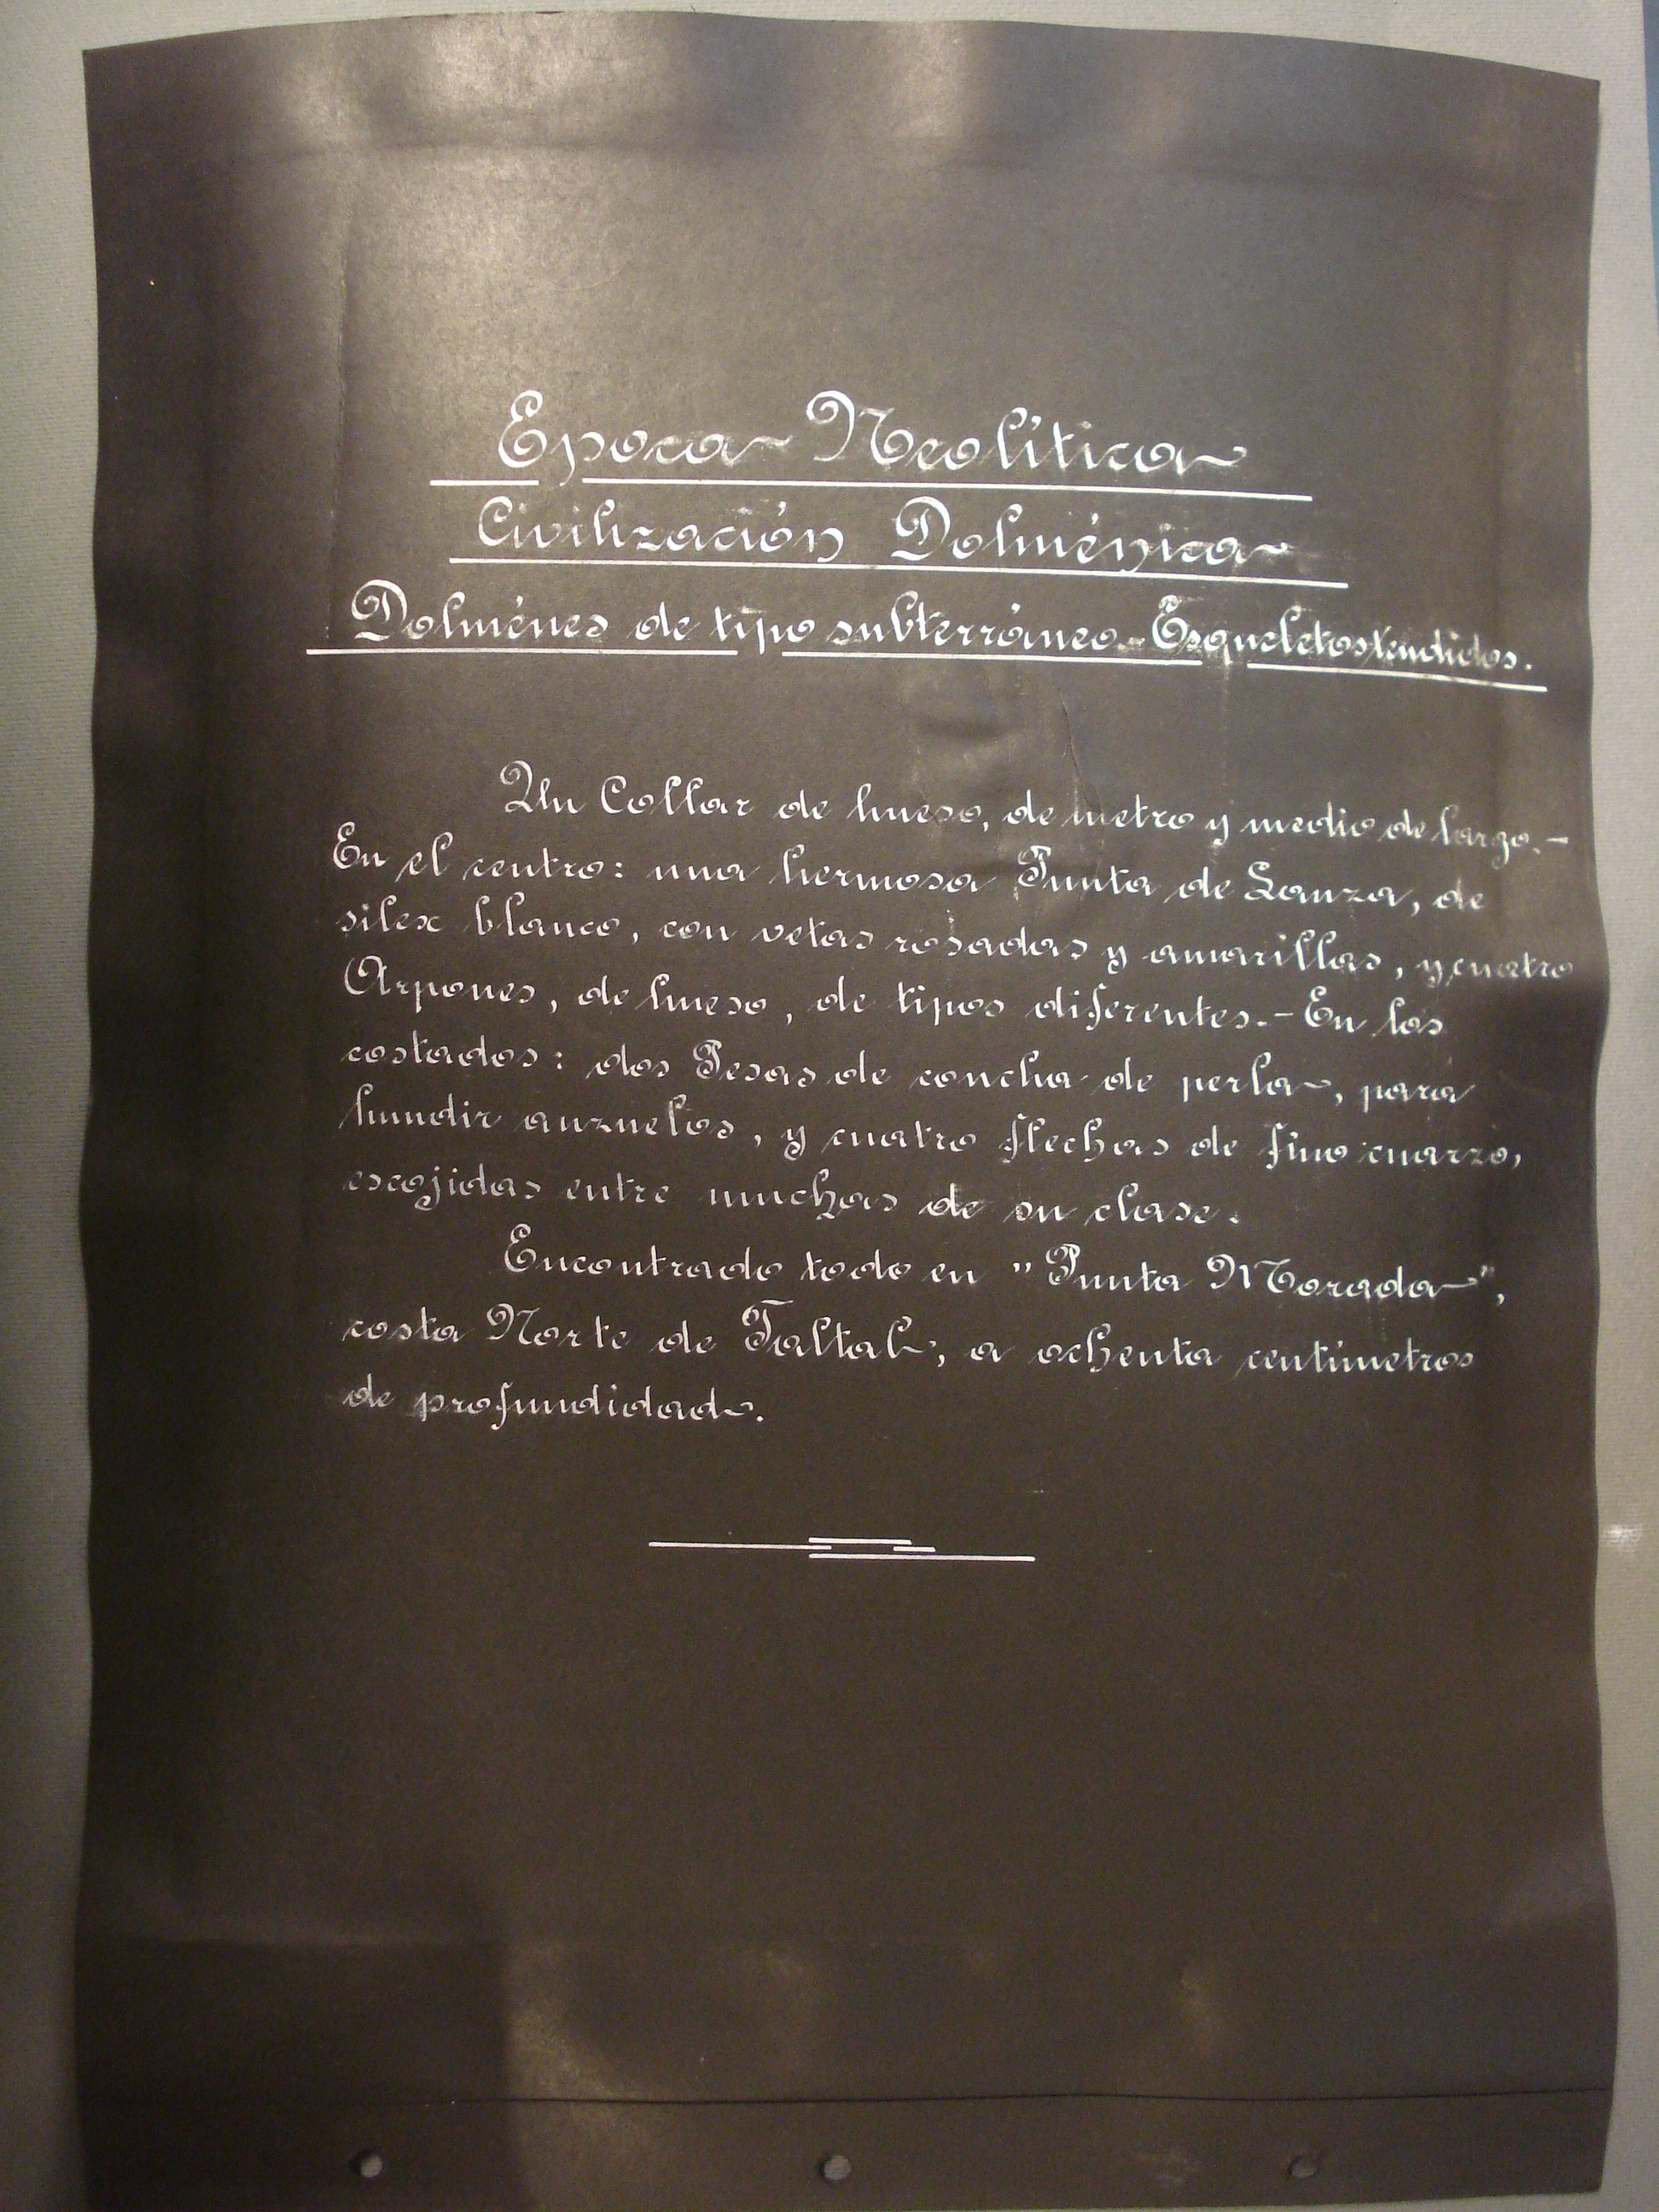 Epoca Neolítica
Civilización Dolménica
Dolménes de tipo subterráneo.-Esqueletos tendidos.
Un Collar de hueso, de metro y medio de largo.-
En el centro: una hermosa Punta de Lanza, de
silex blanco, con vetas rosadas y amarillas, y cuatro
Arpones, de hueso, de tipos diferentes.- En los
costados: dos Pesas de concha de perla, para
hundir anzuelos, y cuatro flechas de fino cuarzo,
escojidas entre muchas de su clase.
Encontrado todo en "Punta Morada",
costa Norte de Taltal, a ochenta centímetros
de profundidad.